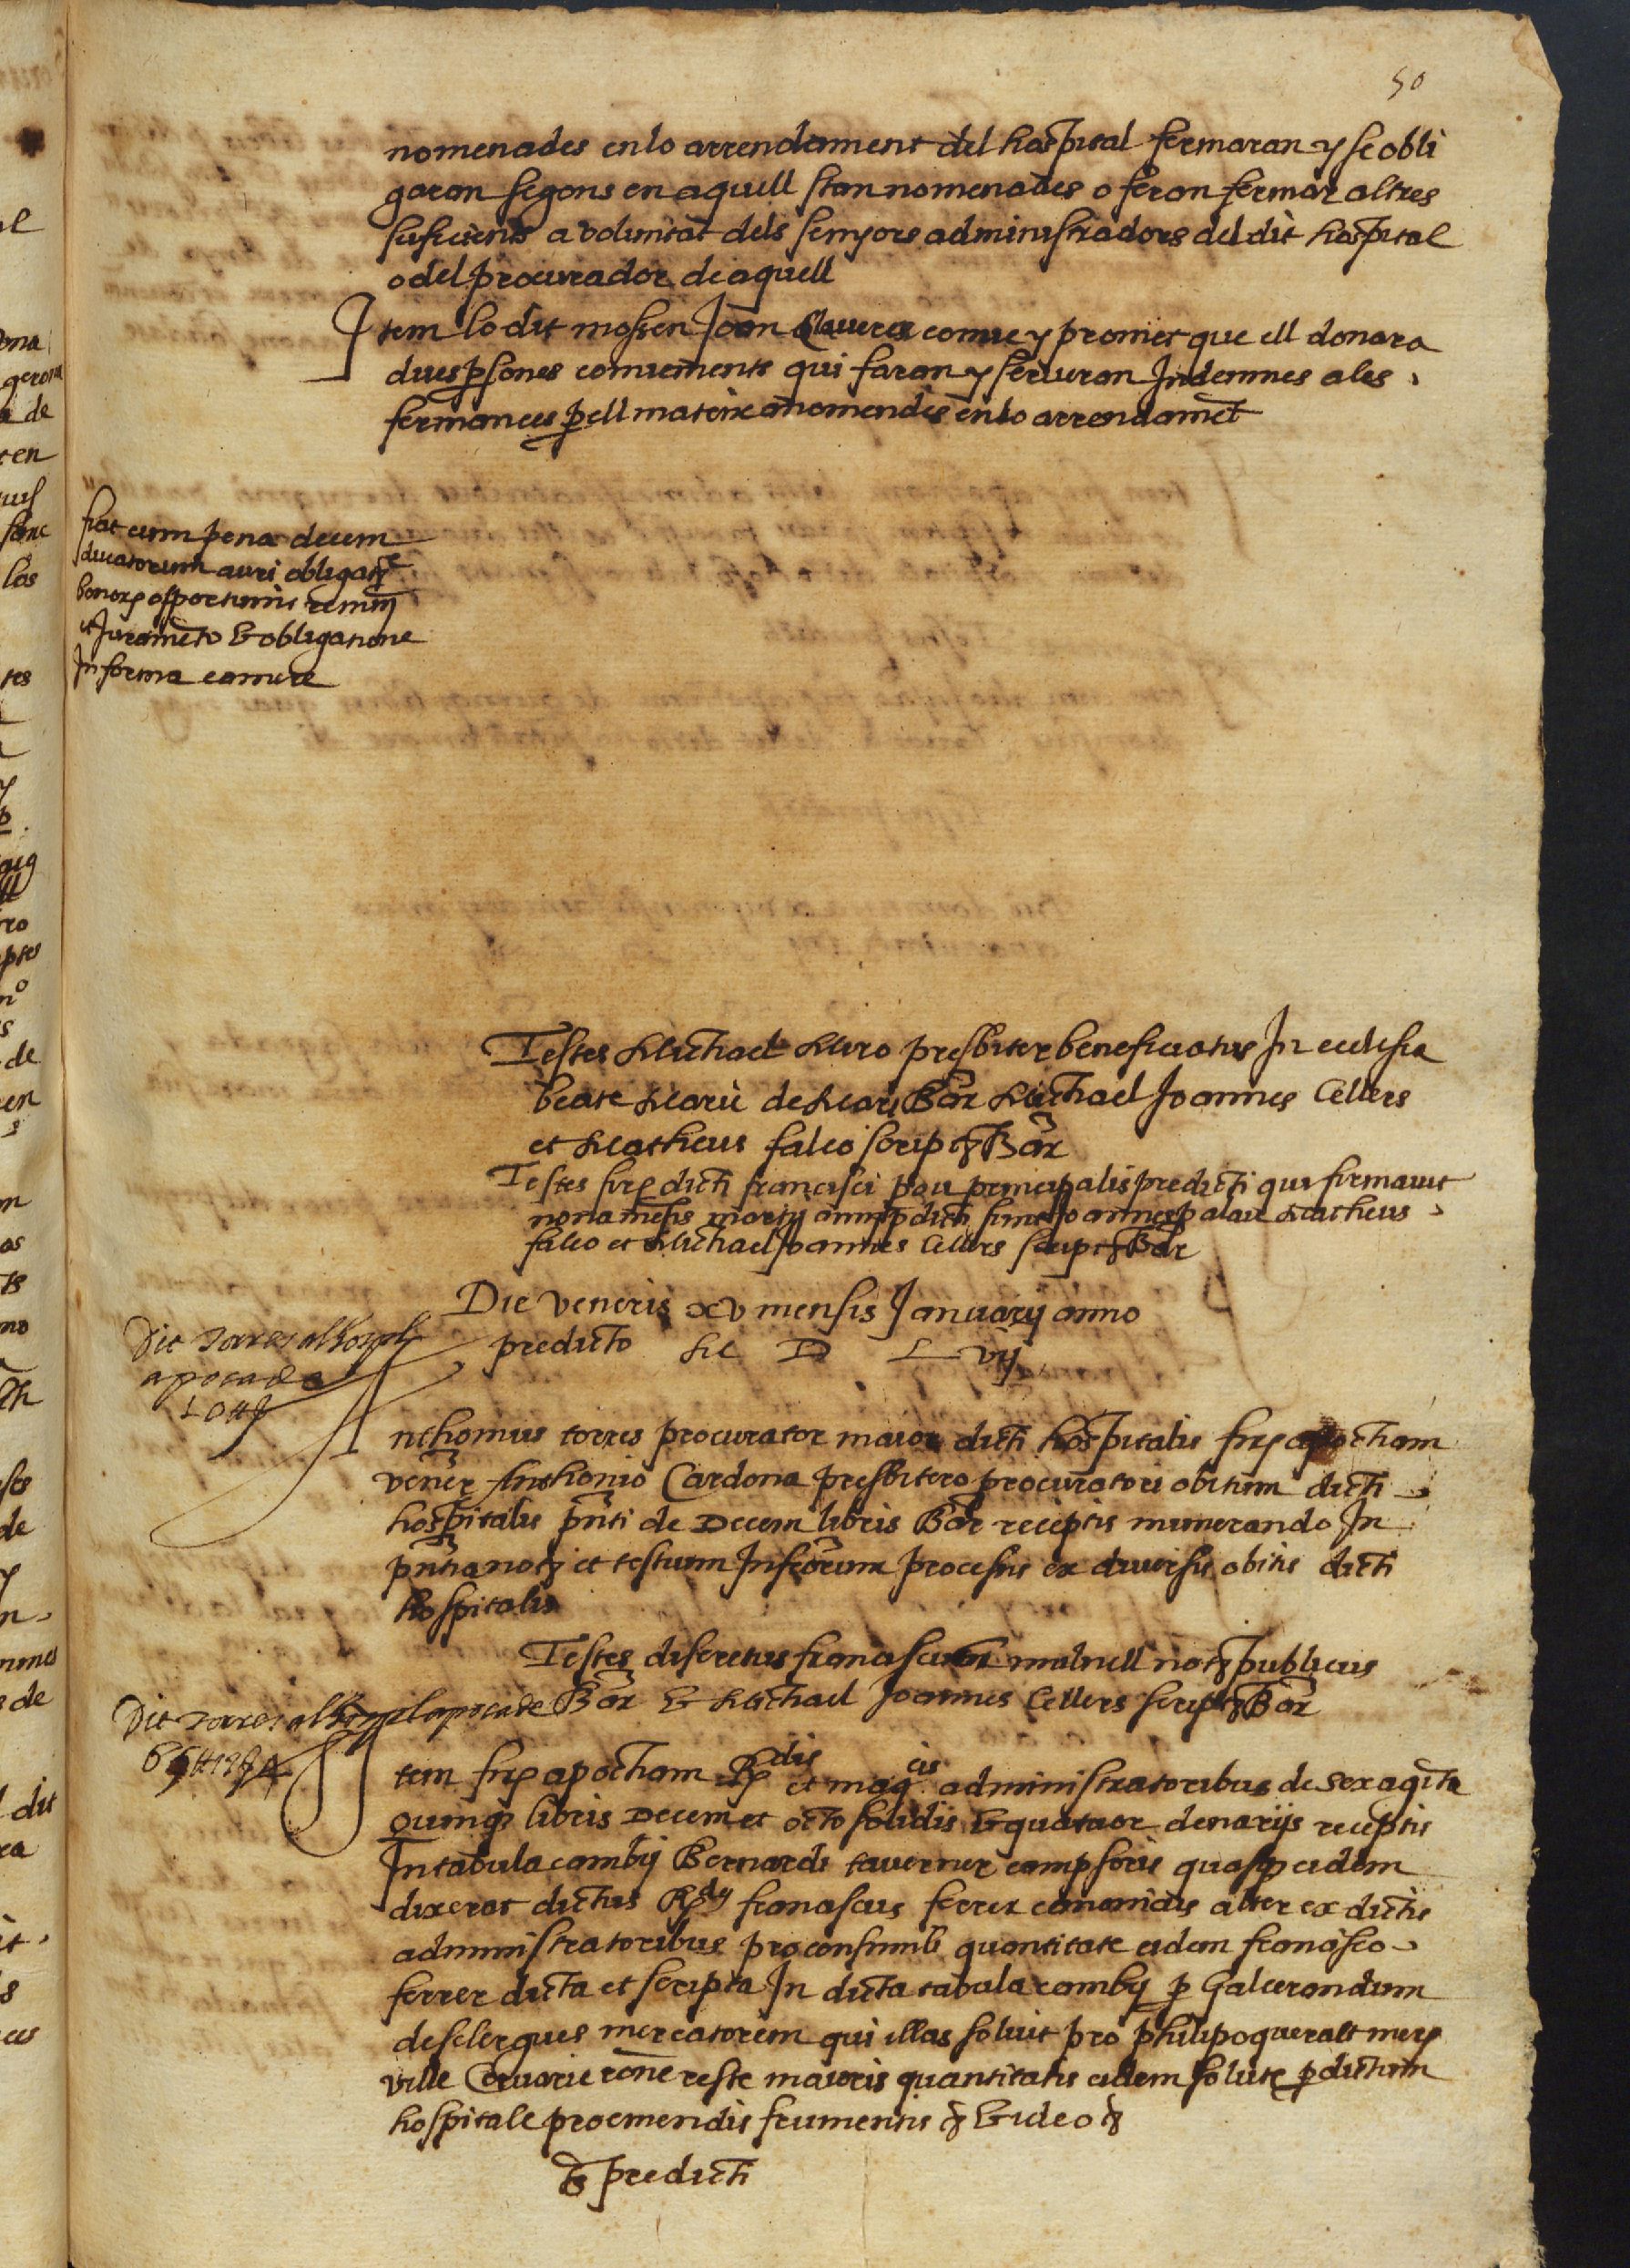 50
nomenades en lo arrendament del hospital fermaran y se obli
garan segons en aquell stan nomenades o feran fermar altres
suficients a voluntat dels senyors administradors del dit hospital
o del procurador de aquell
Item lo dit mossen Joan Claveres conve y promet que ell donara
dues psones convenients qui faran y servaran Indemnes a les
fermances p ell mateix anomendes en lo arrendamet
fiat cum pena decem
ducatorum auri obligat
bonorz opportunis
et Jurameto & obligatione
In forma camere
Testes Michael Miro presbiter beneficiatus In ecclesia
beate Marie de Mari Bar Michael Joannes Cellers
et Matheus falco scrip Bar
Testes fire dicti francisci pou principalis predicti qui firmavit
nona mesis marcij anni p dicti sunt Joannes palau Matheus
falco et Michael Joannes Cellers scrip Bar
Die veneris xv mensis January anno
predicto M D L vij
Die torres al hospl
apoca de
10 ħ
Anthonius torres procurator maior dicti hospitalis fire apocham
vener Anthonio Cardona presbitero procuratori obituum dicti
hospitalis pnti de Decem libris Bar receptis numerando In
pntia not et testium Infrorum processis ex diversis obitis dicti
hospitalis
Testes discretus franciscus mulnell not publicus
Bar & Michael Joannes Cellers script Bar
Die torres al hospl apoca de
65 ħ 18 ß 4
Item fire apocham Rdis et magcis administratoribus de sexagita
quinq libris Decem et octo solidis & quatuor denarijs receptis
In tabula cambij Bernardi taverner campsoris quasq eidem
dixerat dictus Rdus franciscus ferrer canonicus alter ex dictis
administratoribus pro consimili quantitate eidem francisco
ferrer dicta et scripta In dicta tabula cambij p Galcerandum
desclergues mercatorem qui illas solvit pro philipo queralt merz
ville Cervarie rone reste maioris quantitatis eidem solute p dictum
hospitale pro emendis frumentis & ideo
ts predicti